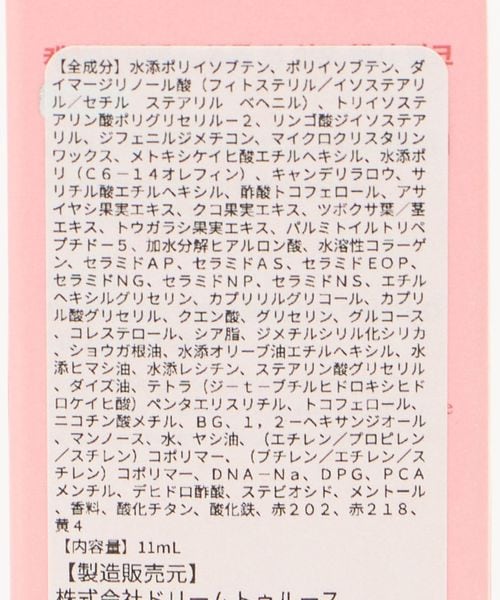 【全成分】水添ポリイソブテン、ポリイソブテン、ダ
イマージリノール酸（フィトステリル／イソステアリ
ル／セチル　ステアリル　ベヘニル）、トリイソステ
アリン酸ポリグリセリル－２、リンゴ酸ジイソステア
リル、ジフェニルジメチコン、マイクロクリスタリン
ワックス、メトキシケイヒ酸エチルヘキシル、水添ポ
リ（Ｃ６－１４オレフィン）、キャンデリラロウ、サ
リチル酸エチルヘキシル、酢酸トコフェロール、アサ
イヤシ果実エキス、クコ果実エキス、ツボクサ葉／茎
エキス、トウガラシ果実エキス、パルミトイルトリペ
プチド－５、加水分解ヒアルロン酸、水溶性コラーゲ
ン、セラミドＡＰ、セラミドＡＳ、セラミドＥＯＰ、
セラミドＮＧ、セラミドＮＰ、セラミドＮＳ、エチル
ヘキシルグリセリン、カプリリルグリコール、カプリ
ル酸グリセリル、クエン酸、グリセリン、グルコース
、コレステロール、シア脂、ジメチルシリル化シリカ
、ショウガ根油、水添オリーブ油エチルヘキシル、水
添ヒマシ油、水添レシチン、ステアリン酸グリセリル
、ダイズ油、テトラ（ジ－ｔ－ブチルヒドロキシヒド
ロケイヒ酸）ペンタエリスリチル、トコフェロール、
ニコチン酸メチル、ＢＧ、１，２－ヘキサンジオール
、マンノース、水、ヤシ油、（エチレン／プロピレン
／スチレン）コポリマー、（ブチレン／エチレン／ス
チレン）コポリマー、ＤＮＡ－Ｎａ、ＤＰＧ、ＰＣＡ
メンチル、デヒドロ酢酸、ステビオシド、メントール
、香料、酸化チタン、酸化鉄、赤２０２、赤２１８、
黄４
【内容量】11mL
【製造販売元】
株式会社ドリームトゥルース